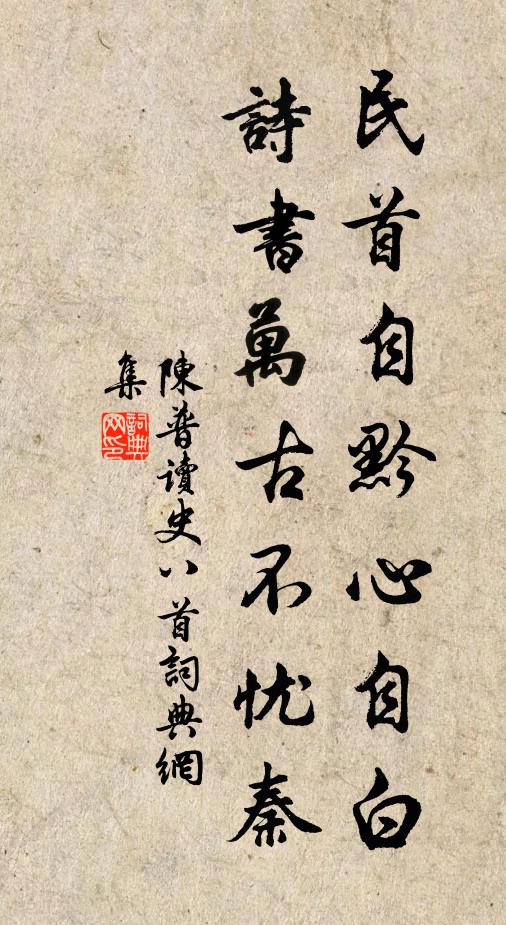 民首自黔心自白
詩書萬古不忧秦
陳普讀史八首詞典網
集
詞典
网印